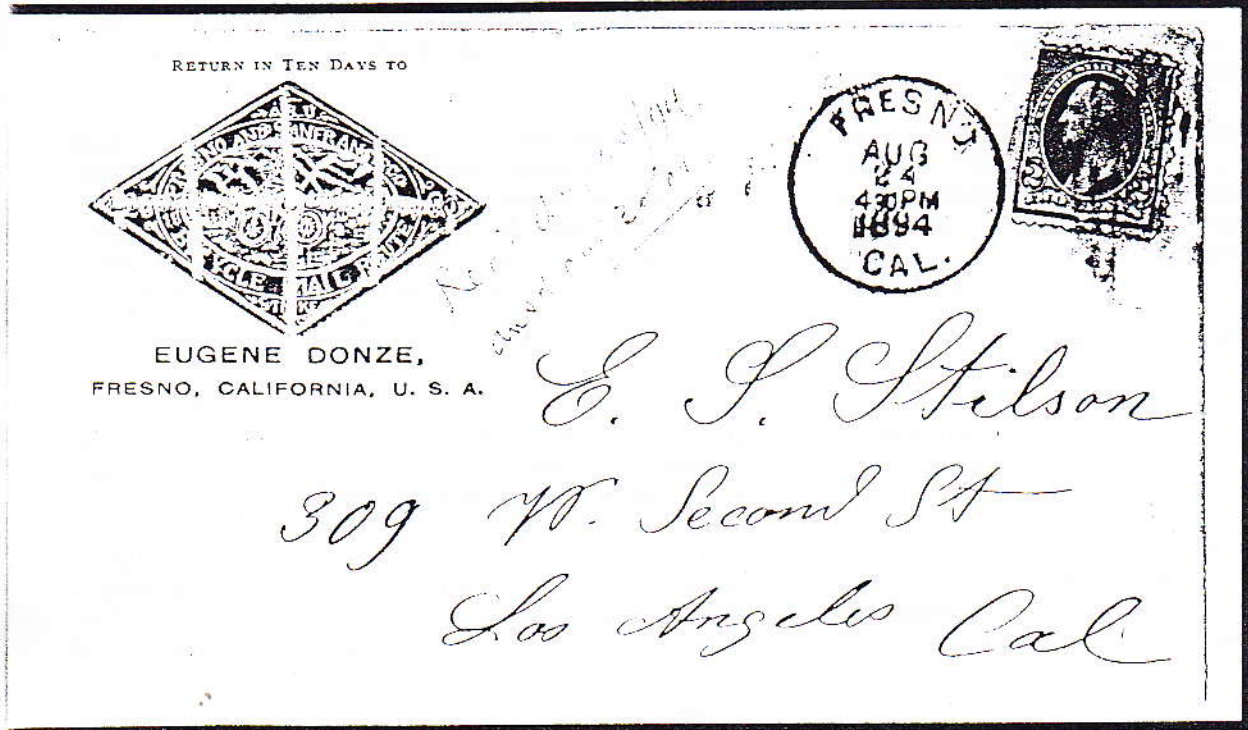 RETURN IN TEN DAYS TO
A.R.U.
AND
CYCLE MAIL ROUTE
EUGENE DONZE,
FRESNO, CALIFORNIA, U. S. A.
FRESNO
AUG
24
430PM
1894
CAL.
E. S. Stilson
309 W. Second St
Los Angeles Cal